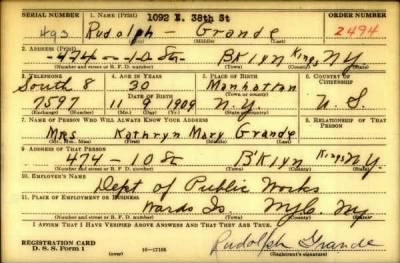 SERIAL NUMBER 1. NAME (Print) 1092 E. 38th St ORDER NUMBER
493 Rudolph - Grande 2494
(First) (Middle) (Last)
2. ADDRESS (Print)
-474 - 10 St B'Klyn Kings N.Y.
(Number and street or R. F. D. number) (Town) (County) (State)
3. TELEPHONE 4. AGE IN YEARS 5. PLACE OF BIRTH 6. COUNTRY OF CITIZENSHIP
South 8 30 Manhattan
DATE OF BIRTH (Town or county)
7597 11 9 1909 N.Y. U.S.
(Exchange) (Number) (Mo.) (Day) (Yr.) (State or country)
7. NAME OF PERSON WHO WILL ALWAYS KNOW YOUR ADDRESS 8. RELATIONSHIP OF THAT PERSON
Mrs Kathryn Mary Grande
(Mr., Mrs., Miss) (First) (Middle) (Last)
9. ADDRESS OF THAT PERSON
474 - 10 St B'Klyn Kings N.Y.
(Number and street or R. F. D. number) (Town) (County) (State)
10. EMPLOYER'S NAME
Dept of Public Works
11. PLACE OF EMPLOYMENT OR BUSINESS
Wards Is. NYC NY
(Number and street or R. F. D. number) (Town) (County) (State)
I AFFIRM THAT I HAVE VERIFIED ABOVE ANSWERS AND THAT THEY ARE TRUE.
REGISTRATION CARD
D. S. S. Form 1 (over) 16-17105 Rudolph Grande